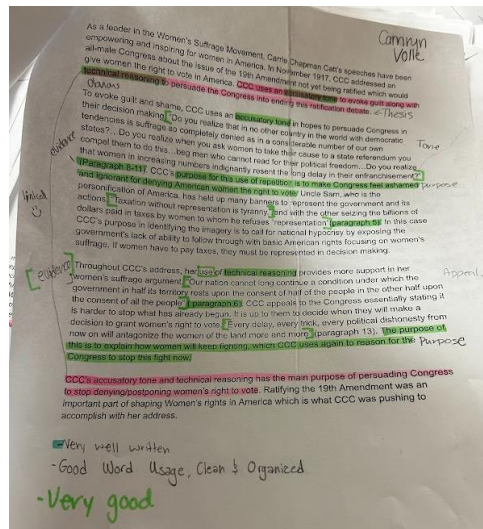 Camryn
Volle
As a leader in the Women's Suffrage Movement, Carrie Chapman Catt's speeches have been
empowering and inspiring for women in America. In November 1917, CCC addressed an
all-male Congress about the issue of the 19th Amendment not yet being ratified which would
give women the right to vote in America. CCC uses an accusatory tone to evoke guilt along with
technical reasoning to persuade the Congress into ending this ratification debate. Thesis
To evoke guilt and shame, CCC uses an accusatory tone in hopes to persuade Congress in
their decision making. "Do you realize that in no other country in the world with democratic
Tone
tendencies is suffrage so completely denied as in a considerable number of our own
states?... Do you realize when you ask women to take their cause to a state referendum you
compel them to do this...beg men who cannot read for their political freedom...Do you realize
that women in increasing numbers indignantly resent the long delay in their enfranchisement?"
(Paragraph 8-11) CCC's purpose for this use of repetition is to make Congress feel ashamed purpose
and ignorant for denying American women the right to vote. Uncle Sam, who is the
personification of America, has held up many banners to represent the government and its
actions. "Taxation without representation is tyranny," and with the other seizing the billions of
dollars paid in taxes by women to whom he refuses "representation" (paragraph 5). In this case
CCC's purpose in identifying the imagery is to call for national hypocrisy by exposing the
government's lack of ability to follow through with basic American rights focusing on women's
suffrage. If women have to pay taxes, they must be represented in decision making.
evidence
linked
[evidence]
Throughout CCC's address, her use of technical reasoning provides more support in her
Appeal
women's suffrage argument. "Our nation cannot long continue a condition under which the
government in half its territory rests upon the consent of half of the people in the other half upon
the consent of all the people" (paragraph 6). CCC appeals to the Congress essentially stating it
is harder to stop what has already begun. It is up to them to decide when they will make a
decision to grant women's right to vote. "Every delay, every trick, every political dishonesty from
now on will antagonize the women of the land more and more" (paragraph 13). The purpose of
this is to explain how women will keep fighting, which CCC uses again to reason for the Purpose
Congress to stop this fight now.
CCC's accusatory tone and technical reasoning has the main purpose of persuading Congress
to stop denying/postponing women's right to vote. Ratifying the 19th Amendment was an
important part of shaping Women's rights in America which is what CCC was pushing to
accomplish with her address.
-Very well written
-Good Word Usage, Clean & Organized
-Very good